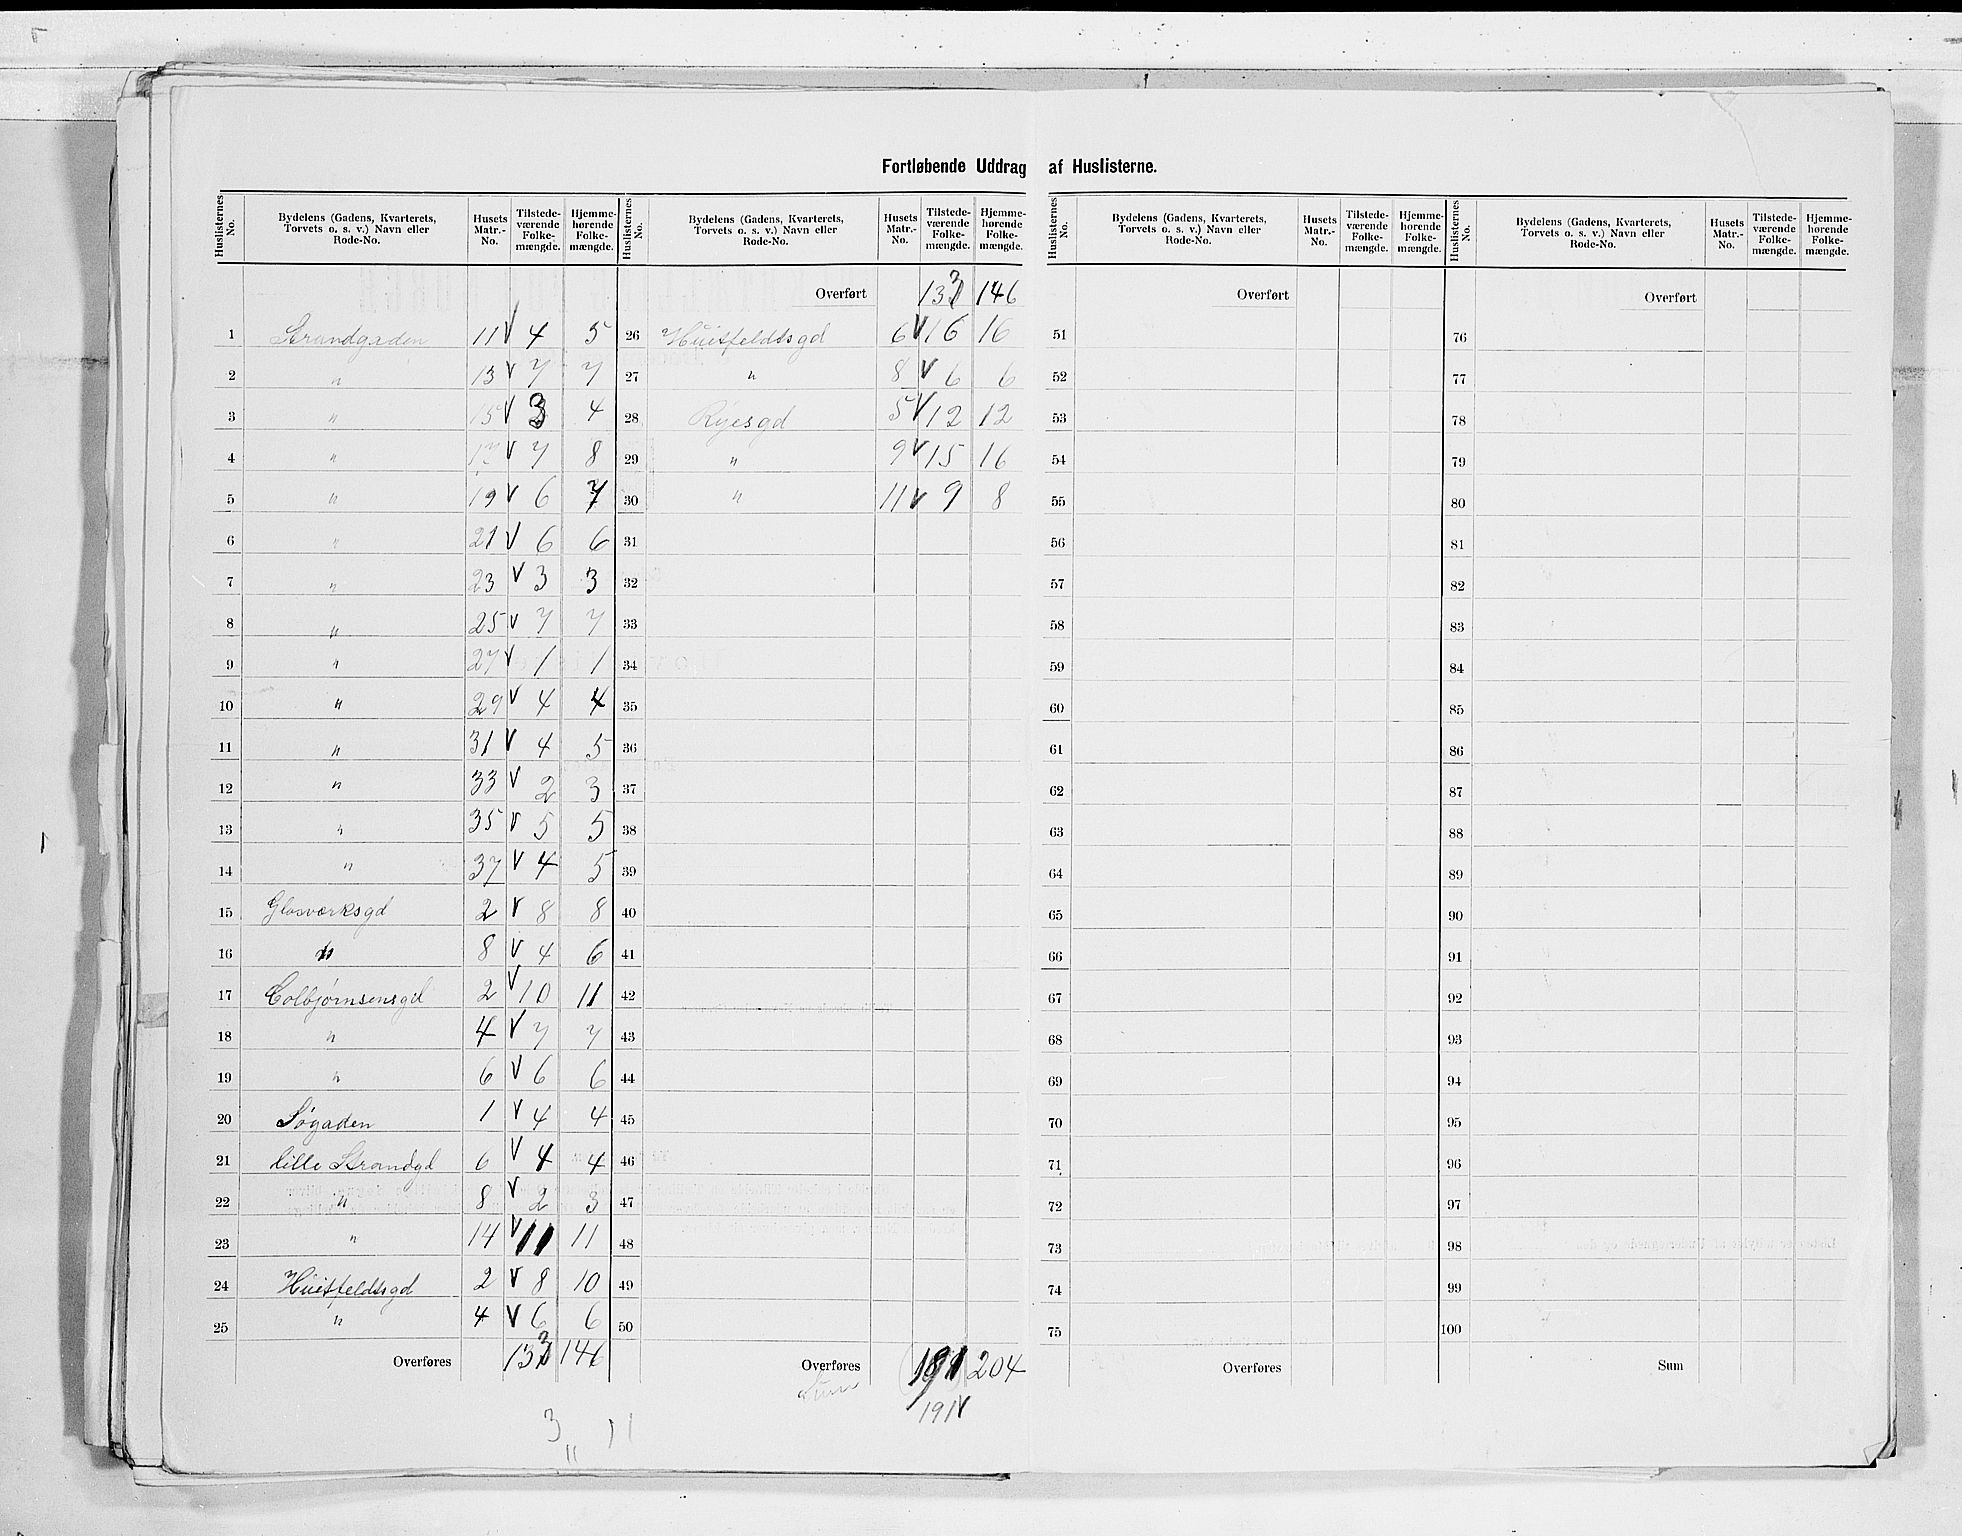 Fortløbende Uddrag af Huslisterne.
Huslisternes No. | Bydelens (Gadens, Kvarterets, Torvets o. s. v.) Navn eller Rode-No. | Husets Matr.-No. | Tilstede-værende Folke-mængde. | Hjemme-hørende Folke-mængde. | Huslisternes No. | Bydelens (Gadens, Kvarterets, Torvets o. s. v.) Navn eller Rode-No. | Husets Matr.-No. | Tilstede-værende Folke-mængde. | Hjemme-hørende Folke-mængde. | Huslisternes No. | Bydelens (Gadens, Kvarterets, Torvets o. s. v.) Navn eller Rode-No. | Husets Matr.-No. | Tilstede-værende Folke-mængde. | Hjemme-hørende Folke-mængde. | Huslisternes No. | Bydelens (Gadens, Kvarterets, Torvets o. s. v.) Navn eller Rode-No. | Husets Matr.-No. | Tilstede-værende Folke-mængde. | Hjemme-hørende Folke-mængde.
Overført 133 146 Overført Overført
1 Strandgaden 11 V 4 5 26 Hüitfeldtsgd 6 V 16 16 51 76
2 " 13 V 7 7 27 " 8 V 6 6 52 77
3 " 15 V 3 4 28 Ryesgd 5 V 12 12 53 78
4 " 17 V 7 8 29 " 9 V 15 16 54 79
5 " 19 V 6 7 30 " 11 V 9 8 55 80
6 " 21 V 6 6 31 56 81
7 " 23 V 3 3 32 57 82
8 " 25 V 7 7 33 58 83
9 " 27 V 1 1 34 59 84
10 " 29 V 4 4 35 60 85
11 " 31 V 4 5 36 61 86
12 " 33 V 2 3 37 62 87
13 " 35 V 5 5 38 63 88
14 " 37 V 4 5 39 64 89
15 Glasværksgd 2 V 8 8 40 65 90
16 " 8 V 4 6 41 66 91
17 Colbjørnsensgd 2 V 10 11 42 67 92
18 " 4 V 7 7 43 68 93
19 " 6 V 6 6 44 69 94
20 Søgaden 1 V 4 4 45 70 95
21 Lille Strandgd 6 V 4 4 46 71 96
22 " 8 V 2 3 47 72 97
23 " 14 V 11 11 48 73 98
24 Hüitfeldtsgd 2 V 8 10 49 74 99
25 " 4 V 6 6 50 75 100
Overføres 133 146 Overføres 191 204 Overføres Sum
Sum 191 V
3 " 11